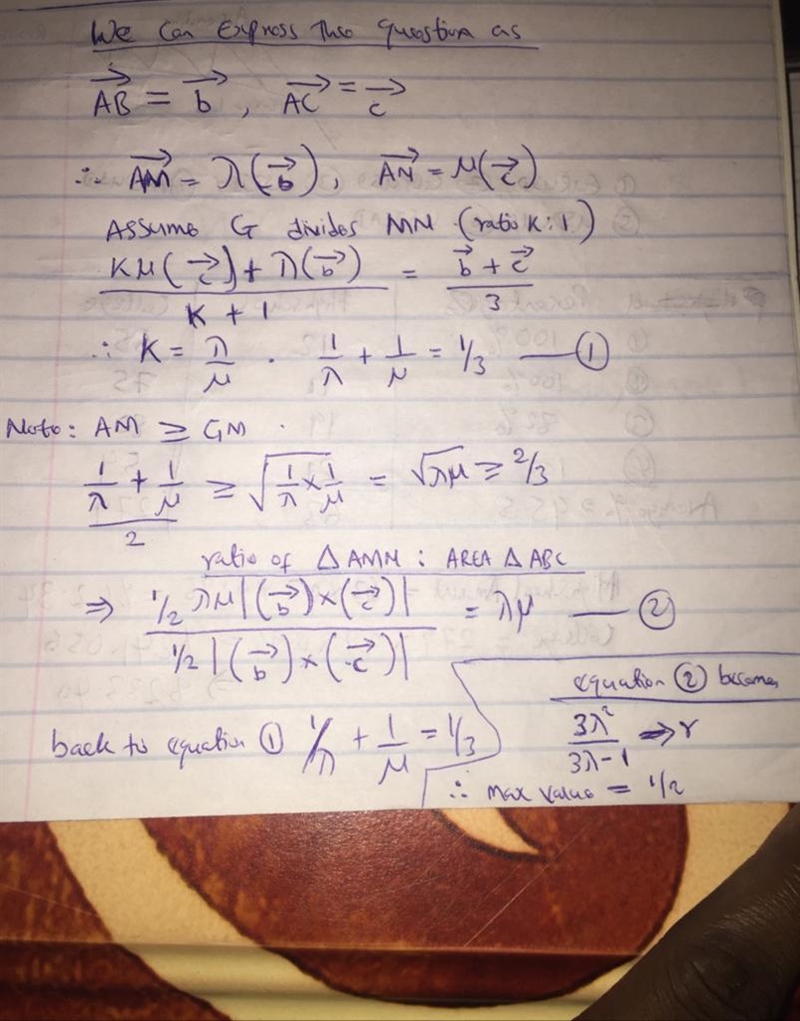 We Can Express The question as
→AB = →b , →AC = →c
∴ →AM = λ(→b), →AN = μ(→c)
Assume G divides MN (ratio K:1)
(Kμ(→c) + λ(→b))/(K + 1) = (→b + →c)/3
∴ K = λ/μ . 1/λ + 1/μ = 1/3 — ①
Note: AM ≥ GM .
(1/λ + 1/μ)/2 ≥ √(1/λ × 1/μ) = √λμ ≥ 2/3
ratio of △AMN : AREA △ABC
⇒ (1/2 λμ|(→b)×(→c)|)/(1/2 |(→b)×(→c)|) = λμ — ②
back to equation ① 1/λ + 1/μ = 1/3
equation ② becomes
3λ²/(3λ-1) → r
∴ max value = 1/2